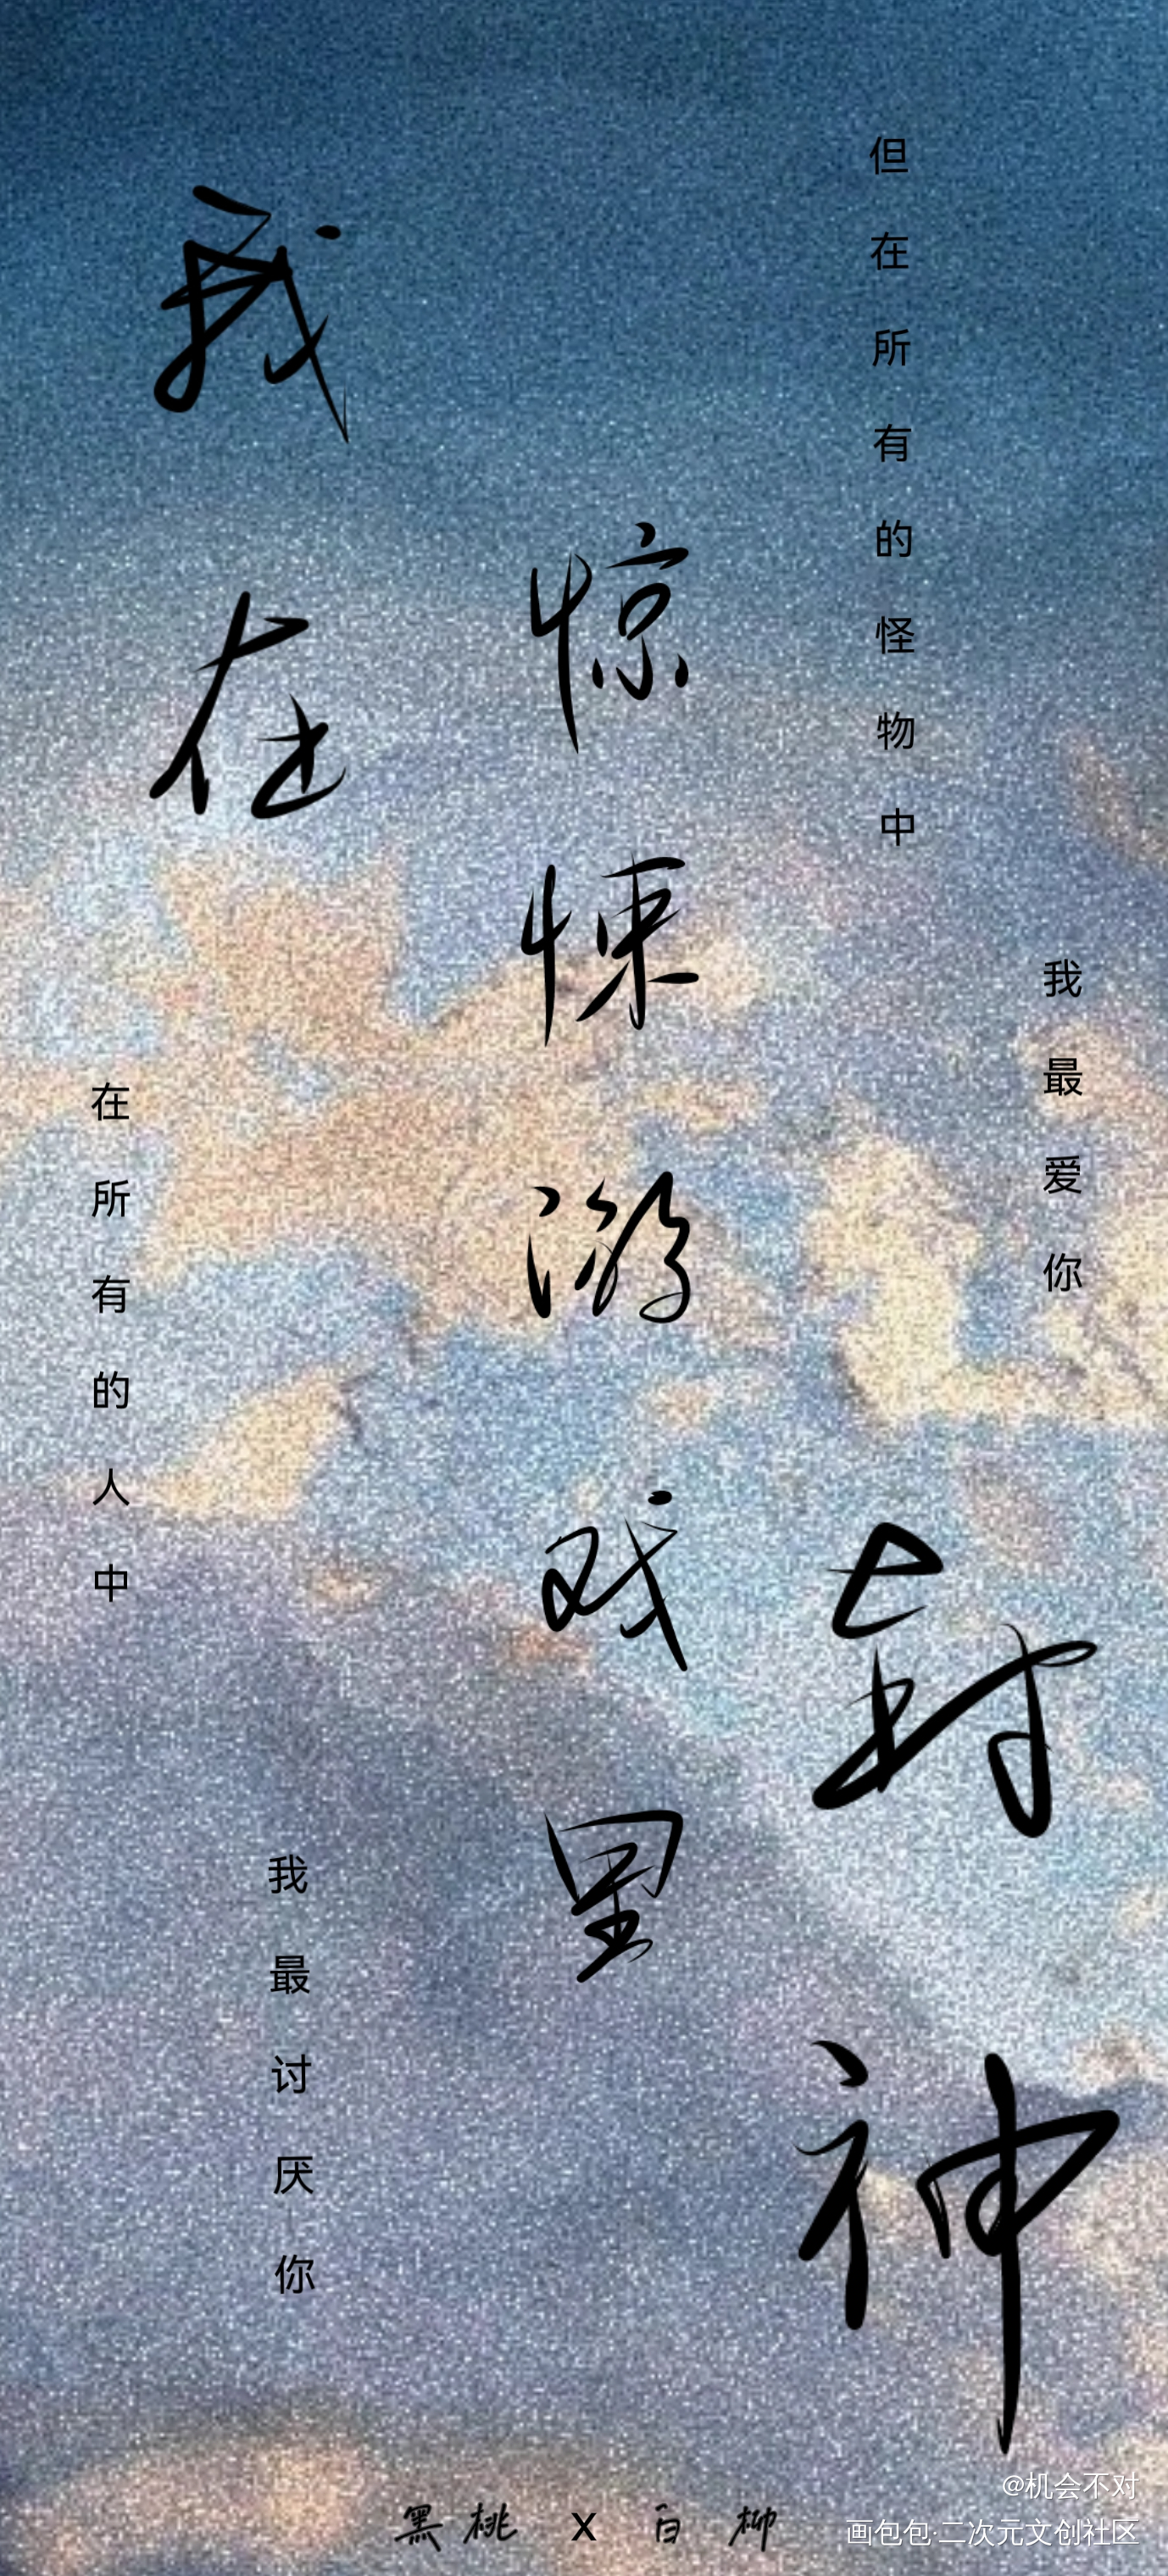 我在
惊悚游戏里
封神
在所有的人中
我最讨厌你
但在所有的怪物中
我最爱你
黑桃 x 白柳
@机会不对
画包包·二次元文创社区